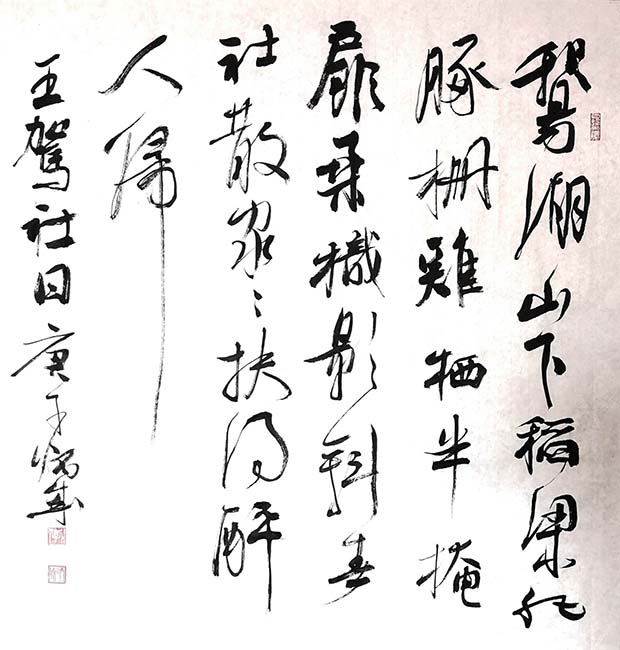 鵝湖山下稻粱肥
豚栅雞栖半掩
扉桑影斜春
社散家々扶得醉
人歸
王駕社日庚子